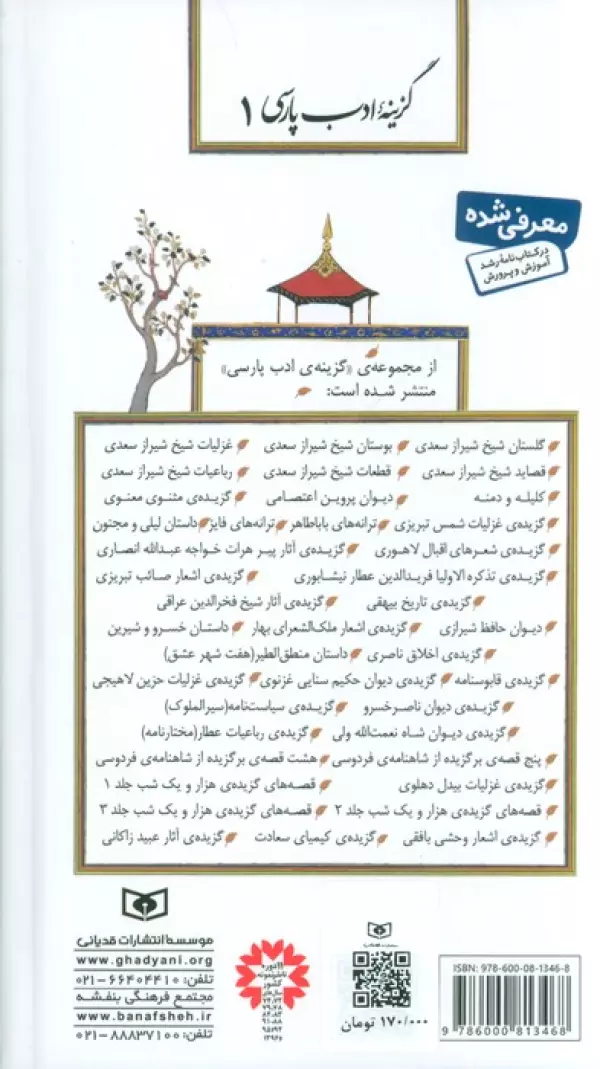 گزینهٔ ادب پارسی ۱
معرفی شده
در کتاب‌نامهٔ رشد
آموزش و پرورش
از مجموعه‌ی «گزینه‌ی ادب پارسی»
منتشر شده است:
گلستان شیخ شیراز سعدی بوستان شیخ شیراز سعدی غزلیات شیخ شیراز سعدی
قصاید شیخ شیراز سعدی قطعات شیخ شیراز سعدی رباعیات شیخ شیراز سعدی
کلیله و دمنه دیوان پروین اعتصامی گزیده‌ی مثنوی معنوی
گزیده‌ی غزلیات شمس تبریزی ترانه‌های باباطاهر ترانه‌های فایز داستان لیلی و مجنون
گزیده‌ی شعرهای اقبال لاهوری گزیده‌ی آثار پیر هرات خواجه عبدالله انصاری
گزیده‌ی تذکره الاولیا فریدالدین عطار نیشابوری گزیده‌ی اشعار صائب تبریزی
گزیده‌ی تاریخ بیهقی گزیده‌ی آثار شیخ فخرالدین عراقی
دیوان حافظ شیرازی گزیده‌ی اشعار ملک‌الشعرای بهار داستان خسرو و شیرین
گزیده‌ی اخلاق ناصری داستان منطق‌الطیر(هفت شهر عشق)
گزیده‌ی قابوسنامه گزیده‌ی دیوان حکیم سنایی غزنوی گزیده‌ی غزلیات حزین لاهیجی
گزیده‌ی دیوان ناصرخسرو گزیده‌ی سیاست‌نامه(سیرالملوک)
گزیده‌ی دیوان شاه نعمت‌الله ولی گزیده‌ی رباعیات عطار(مختارنامه)
پنج قصه‌ی برگزیده از شاهنامه‌ی فردوسی هشت قصه‌ی برگزیده از شاهنامه‌ی فردوسی
گزیده‌ی غزلیات بیدل دهلوی قصه‌های گزیده‌ی هزار و یک شب جلد ۱
قصه‌های گزیده‌ی هزار و یک شب جلد ۲ قصه‌های گزیده‌ی هزار و یک شب جلد ۳
گزیده‌ی اشعار وحشی بافقی گزیده‌ی کیمیای سعادت گزیده‌ی آثار عبید زاکانی
موسسه انتشارات قدیانی
www.ghadyani.org
تلفن: ۶۶۴۰۴۴۱۰-۰۲۱
مجتمع فرهنگی بنفشه
www.banafsheh.ir
تلفن: ۸۸۸۳۷۱۰۰-۰۲۱
۱۱ دوره
ناشر نمونه
کشور
سال‌های
۱۷۰/۰۰۰ تومان
ISBN: 978-600-08-1346-8
9 786000 813468